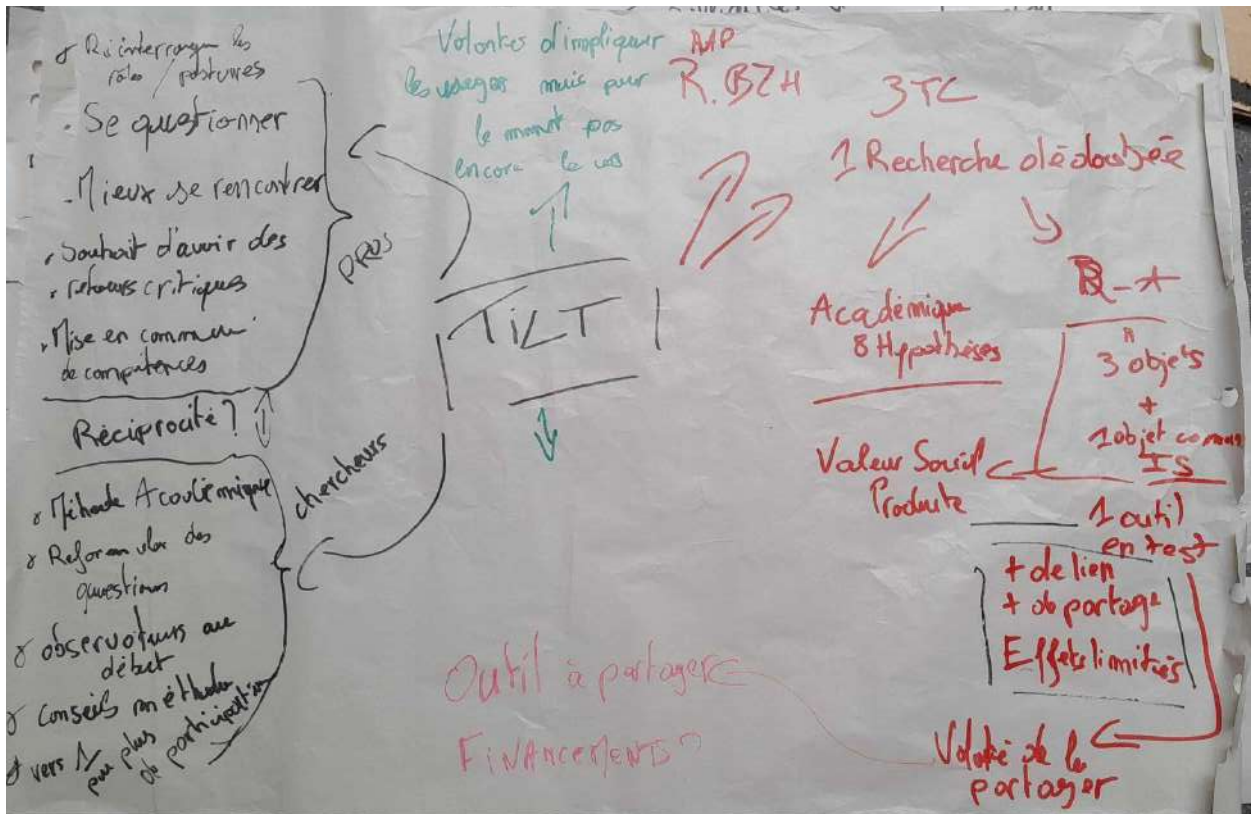 Réinterroger les
rôles / postures
. Se questionner
. Mieux se rencontrer
. Souhait d'avoir des
. retours critiques
. Mise en commun
de compétences
PROS
Réciprocité ?
chercheurs
Méthode Académique
Reformuler des
questions
observateurs au
début
conseils méthodo
vers 1 peu plus
de participation
Volontés d'impliquer
les usagers mais pour
le moment pas
encore le cas
TILT
AAP
R. BZH
3TC
1 Recherche dédoublée
Académique
8 Hypothèses
R-A
3 objets
+
1 objet commun
IS
Valeur Social
Produite
1 outil
en test
+ de lien
+ de partage
Effets limités
Volonté de le
partager
Outil à partager
FINANCEMENTS ?